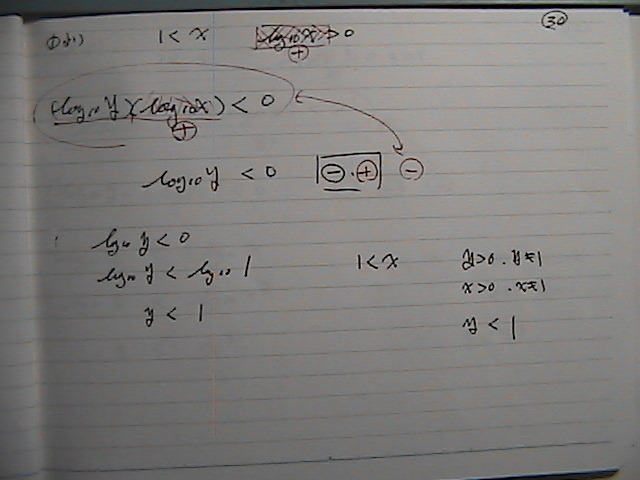 30
1 < x log₁₀x > 0
⊕
(log₁₀ y)(log₁₀ x) < 0
⊕
log₁₀ y < 0 ⊖・⊕ ⊖
log₁₀ y < 0
log₁₀ y < log₁₀ 1 1 < x y>0 . y≠1
x>0 . x≠1
y < 1 y < 1